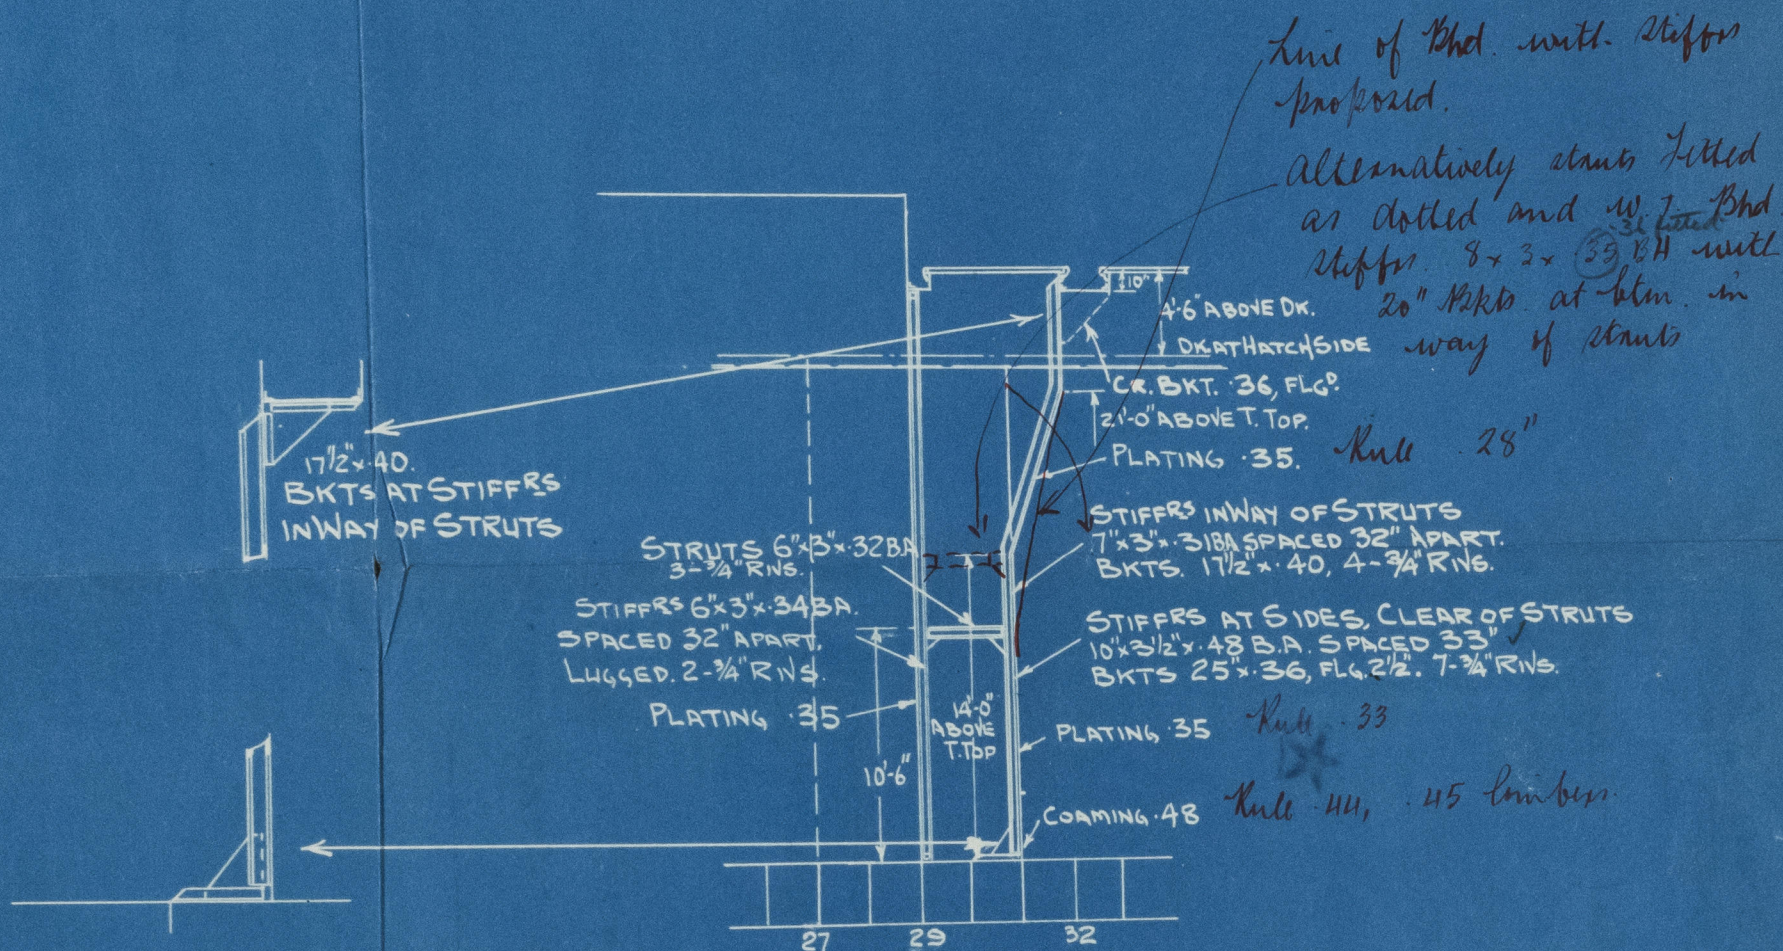 Line of Bhd. with stiffrs
proposed.
Alternatively struts fitted
as dotted and w.T. Bhd
.36 fitted
stiffrs. 8 x 3 x .35 BA with
20" Bkts at btm. in
way of struts
10"
4'-6" ABOVE DK.
DK AT HATCH SIDE
CR. BKT. ·36, FLGD.
21'-0" ABOVE T. TOP.
PLATING ·35. Rule .28"
17½" x ·40.
BKTS AT STIFFRS
IN WAY OF STRUTS
STRUTS 6" x 3" x ·32 BA
3-¾" RIVS.
STIFFRS 6" x 3" x ·34 BA.
SPACED 32" APART.
LUGGED. 2-¾" RIVS.
PLATING ·35
STIFFRS IN WAY OF STRUTS
7" x 3" x ·31 BA SPACED 32" APART.
BKTS. 17½" x ·40, 4-¾" RIVS.
STIFFRS AT SIDES, CLEAR OF STRUTS
10" x 3½" x ·48 B.A. SPACED 33" ✓
BKTS 25" x ·36, FLG. 2½". 7-¾" RIVS.
14'-0"
ABOVE
T. TOP
10'-6"
PLATING ·35 Rule .33
COAMING ·48 Rule .44, .45 limbers.
27 29 32